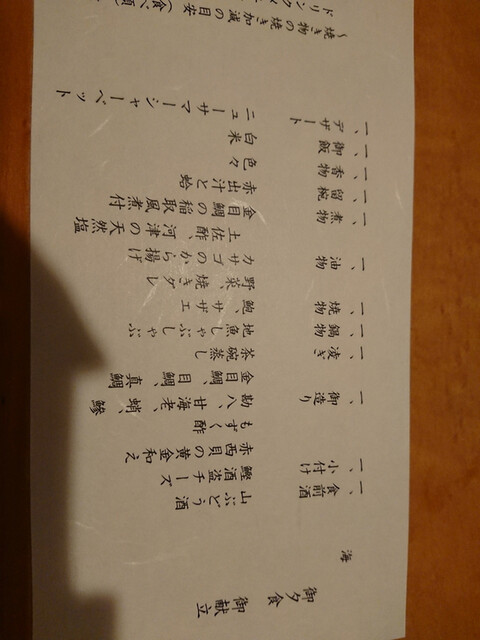 御夕食 御献立
海
一、食前酒 山ぶどう酒
一、小付け 鰹酒盗チーズ
赤西貝の黄金和え
もずく酢
一、御造り 勘八、甘海老、蛸、鯵
金目鯛、真鯛
一、凌ぎ 茶碗蒸し
一、鍋物 地魚しゃぶしゃぶ
一、焼物 鮑、サザエ
野菜、焼きダレ
一、油物 カサゴのから揚げ
土佐酢、河津の天然塩
一、煮物 金目鯛の稲取風煮付
一、留椀 赤出汁と蛤
一、香物 色々
一、御飯 白米
一、デザート ニューサマーシャーベット
～焼き物の焼き加減の目安（食べ頃
ドリンク